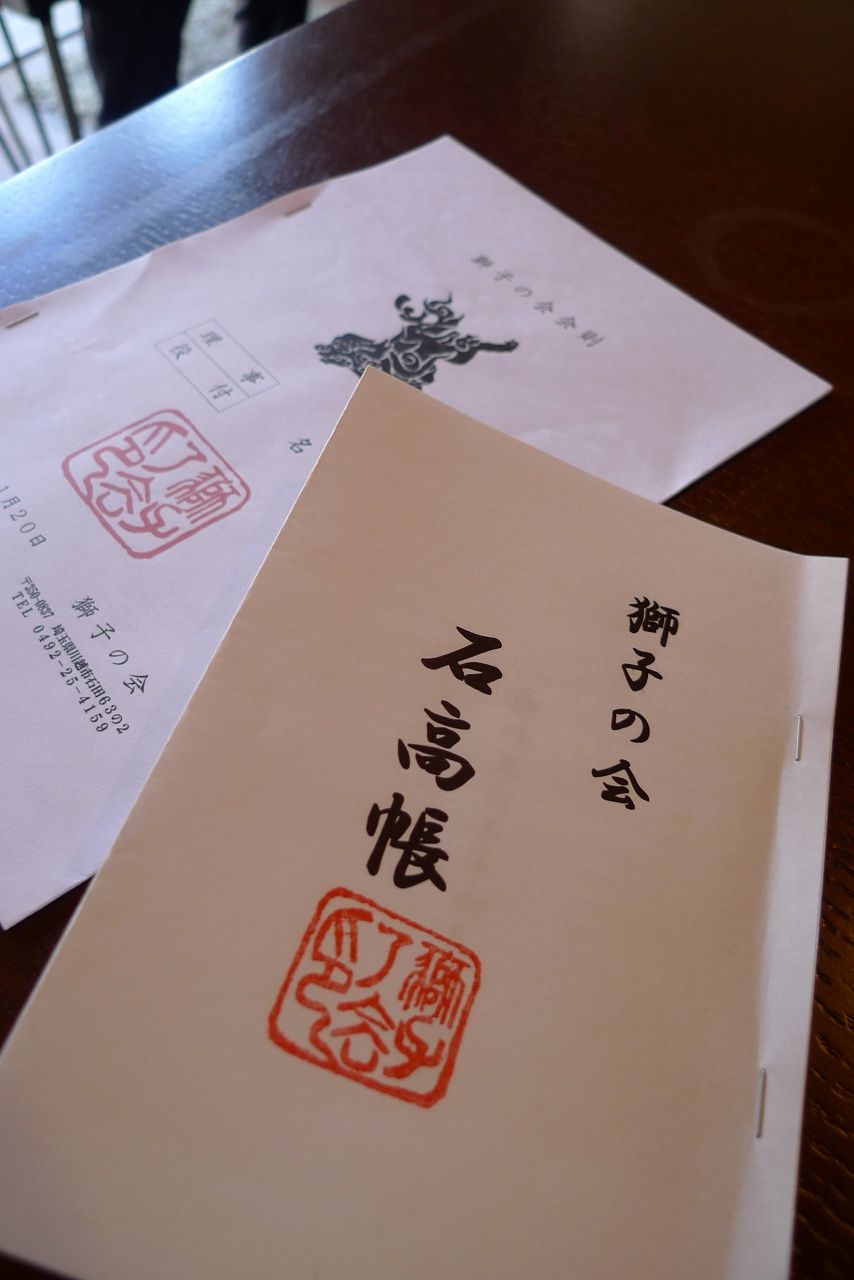 獅子の会
石高帳
獅子之会印
獅子の会会則
理事
役付
名
獅子之会印
1月20日
獅子の会
〒350-0837 埼玉県川越市石田63の2
TEL 0492-25-4159